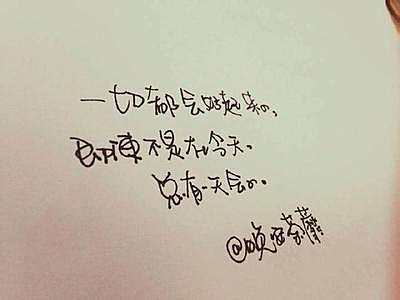 一切都会好起来的,
即便不是在今天。
总有一天会的。
@晚安荼蘼